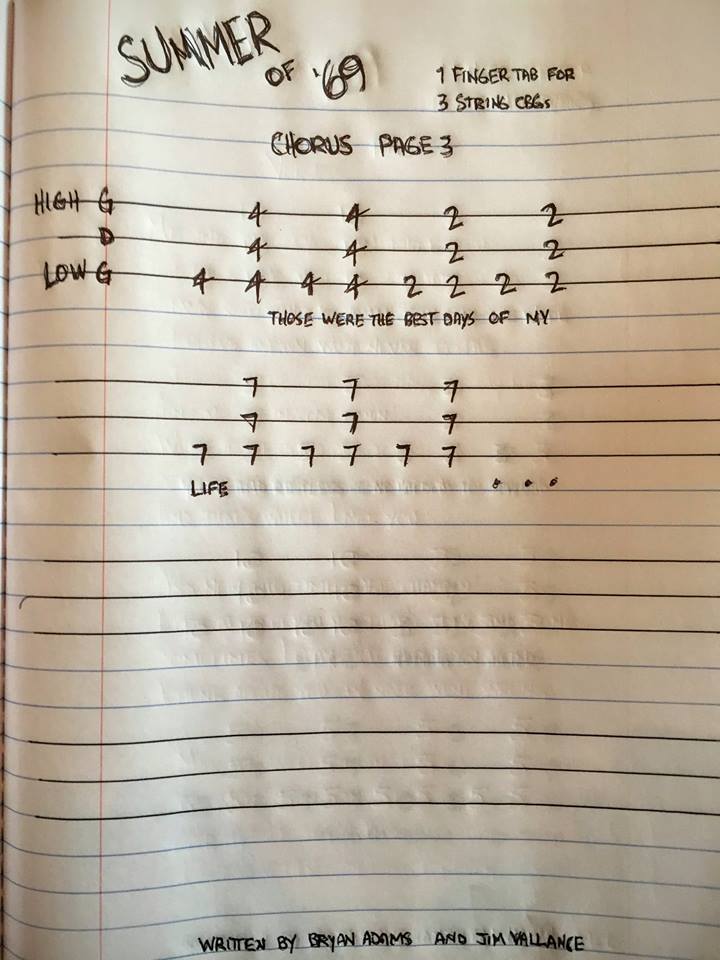 SUMMER
OF '69
1 FINGER TAB FOR
3 STRING CBGs
CHORUS PAGE 3
HIGH G 4 4 2 2
D 4 4 2 2
LOW G 4 4 4 4 2 2 2 2
THOSE WERE THE BEST DAYS OF MY
7 7 7
7 7 7
7 7 7 7 7 7
LIFE . . .
WRITTEN BY BRYAN ADAMS AND JIM VALLANCE